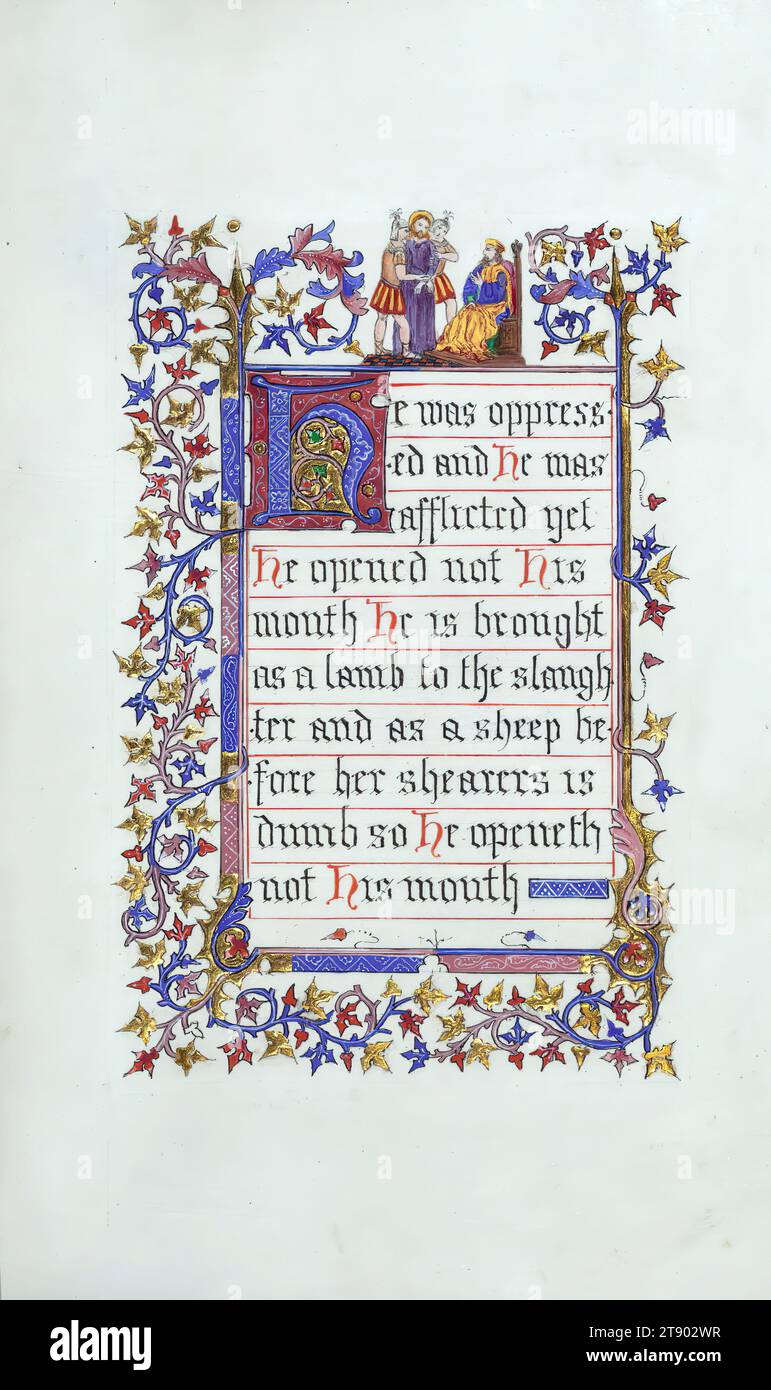 He was oppress-
ed and He was
afflicted yet
He opened not His
mouth He is brought
as a lamb to the slaugh
ter and as a sheep be-
fore her shearers is
dumb so He openeth
not His mouth
alamy
alamy
Image ID: 2T902WR
www.alamy.com